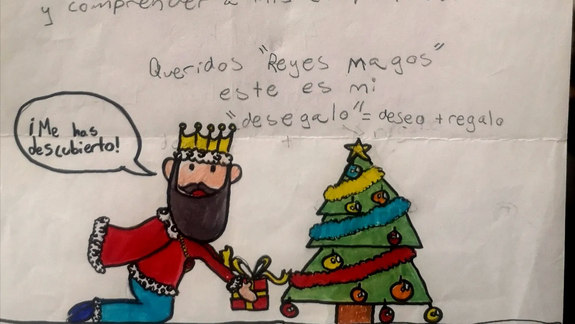 y comprender a mis
Queridos "Reyes Magos"
este es mi
"desegalo" = deseo + regalo
¡Me has
descubierto!